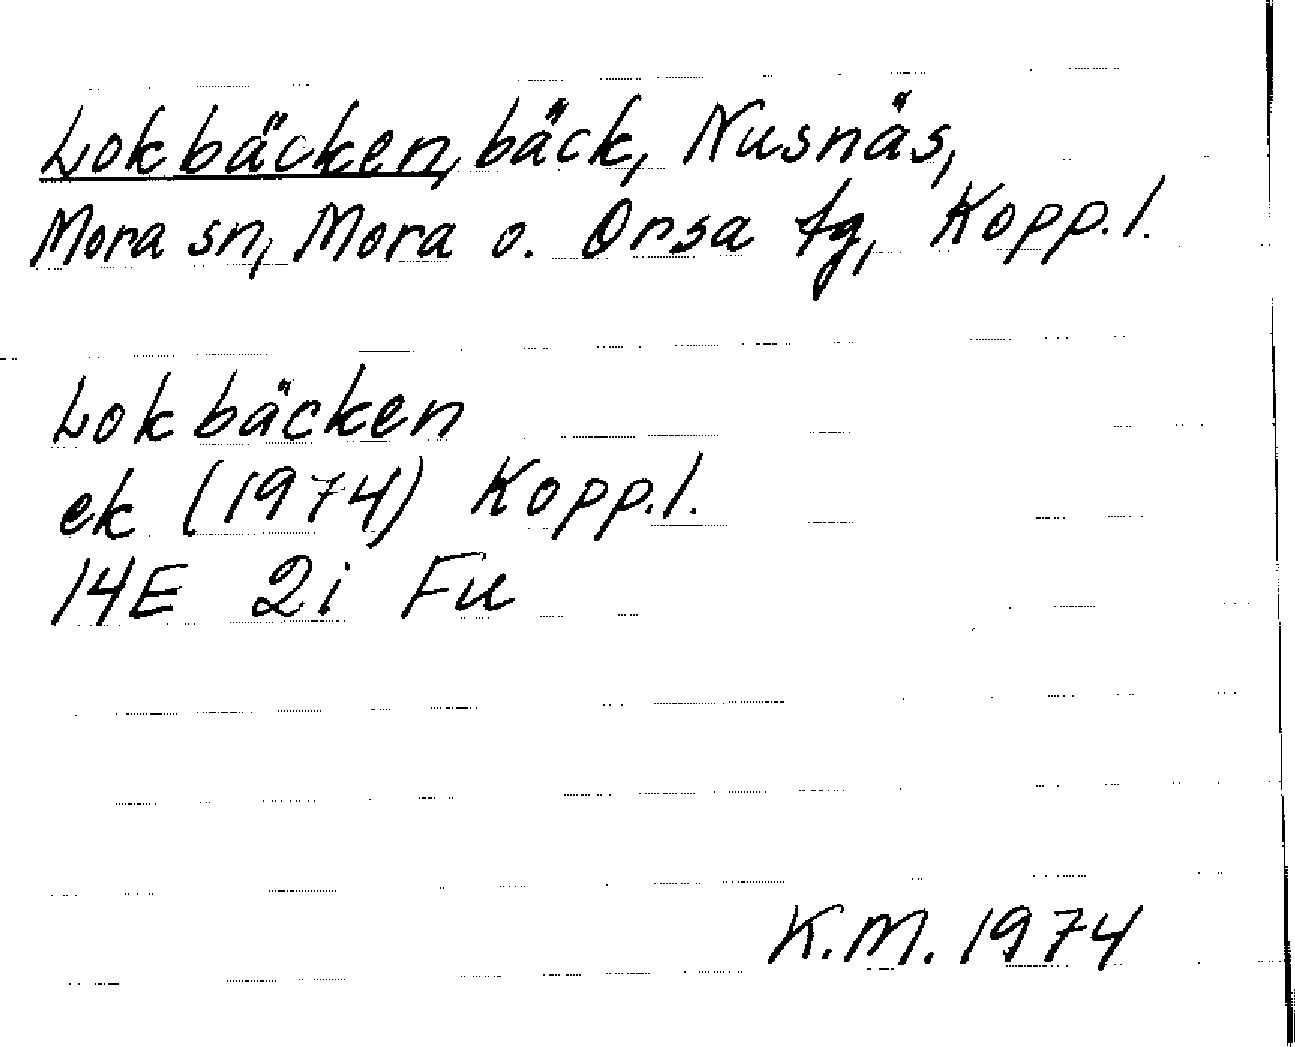 Lokbäcken, bäck, Nusnäs,
Mora sn, Mora o. Orsa tg, Kopp.l.
Lokbäcken
ek (1974) Kopp.l.
14E 2i Fu
K.M. 1974